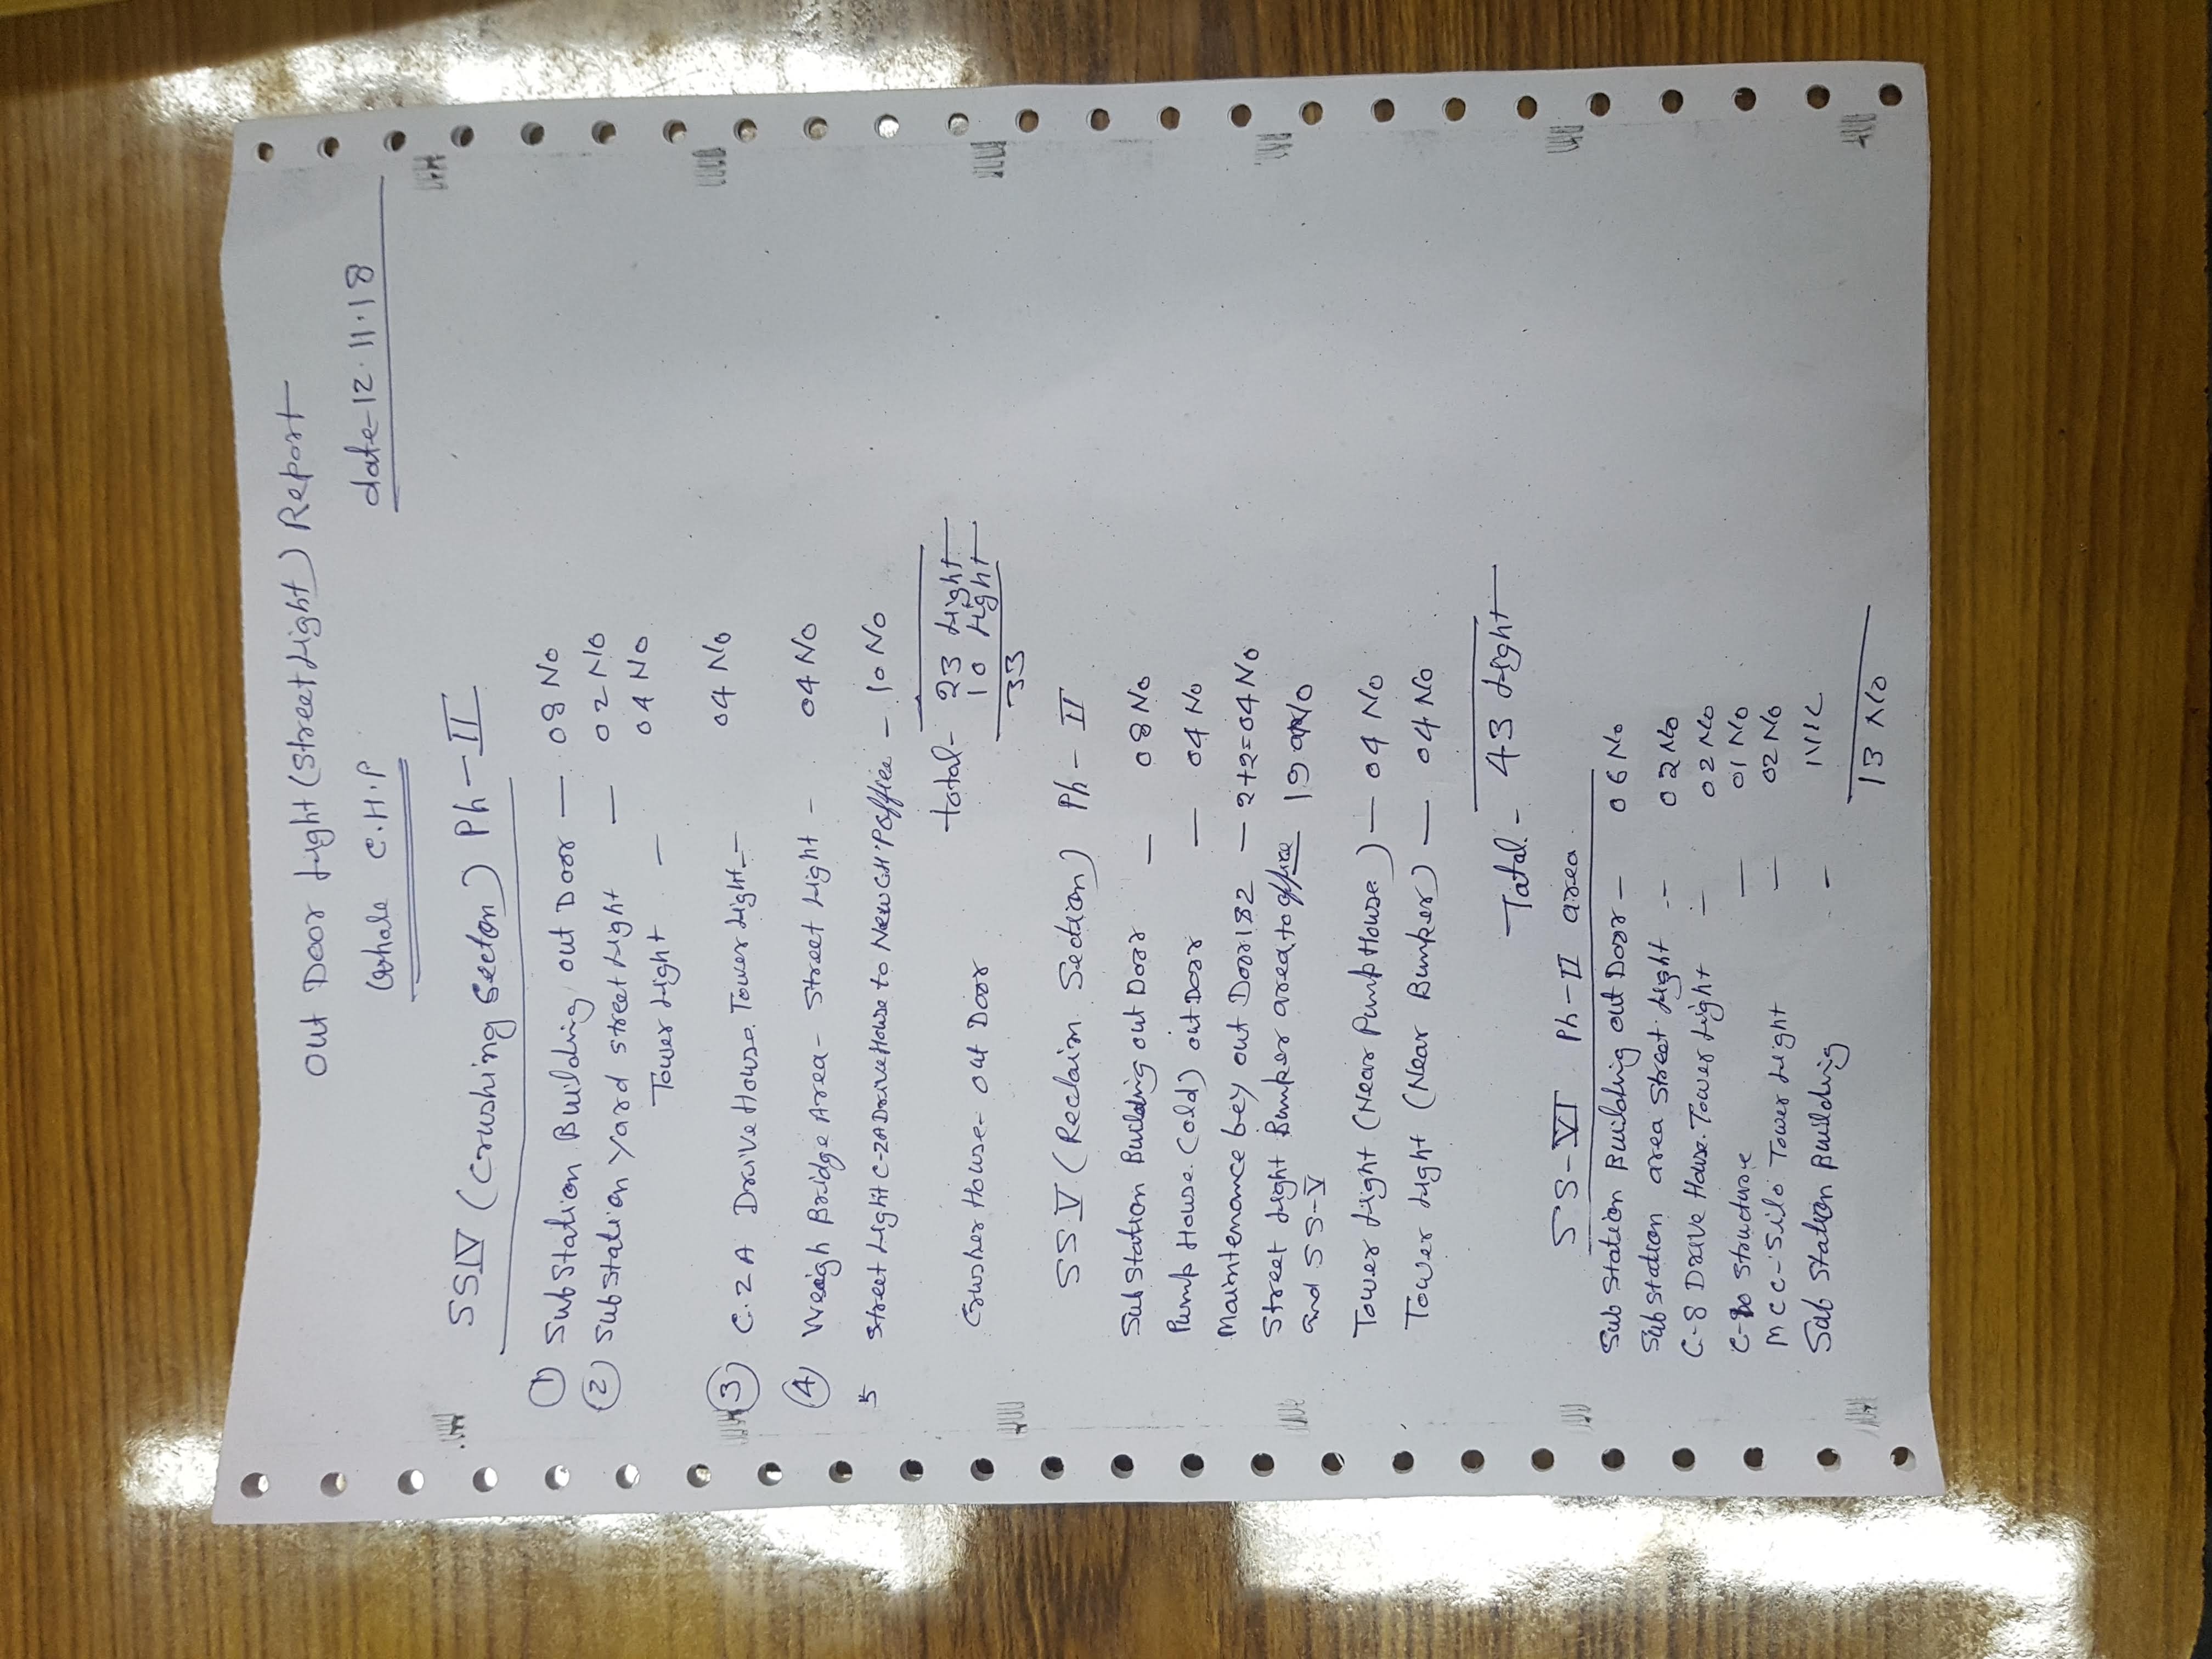 Out Door Light (Street Light) Report
Whole C.H.P
date-12.11.18
SSIV (Crushing Secton) Ph-II
① SubStation Building out Door — 08 No
② Substation yard street Light — 02 No
Tower Light — 04 No
③ C.2A Drive House Tower Light — 04 No
④ Weigh Bridge Area - Street Light - 04 No
5 Street Light C-2A Drive House to New CH.P office — 10 No
total - 23 Light
Crusher House - out Door 10 Light
33
SS V (Reclaim Section) Ph - II
SubStation Building out Door — 08 No
Pump House (old) out Door — 04 No
Maintenance bey out Door 1&2 — 2+2=04 No
Street Light Bunker area to office
and SS-V 19 No
Tower Light (Near Pump House) — 04 No
Tower Light (Near Bunker) — 04 No
Total. - 43 Light
SS-VI Ph-II area
Sub Station Building out Door — 06 No
Substation area Street Light -- 02 No
C-8 Drive House Tower Light — 02 No
C-10 Structure — 01 No
MCC-Silo Tower Light — 02 No
Sub Station Building - NIL
13 No